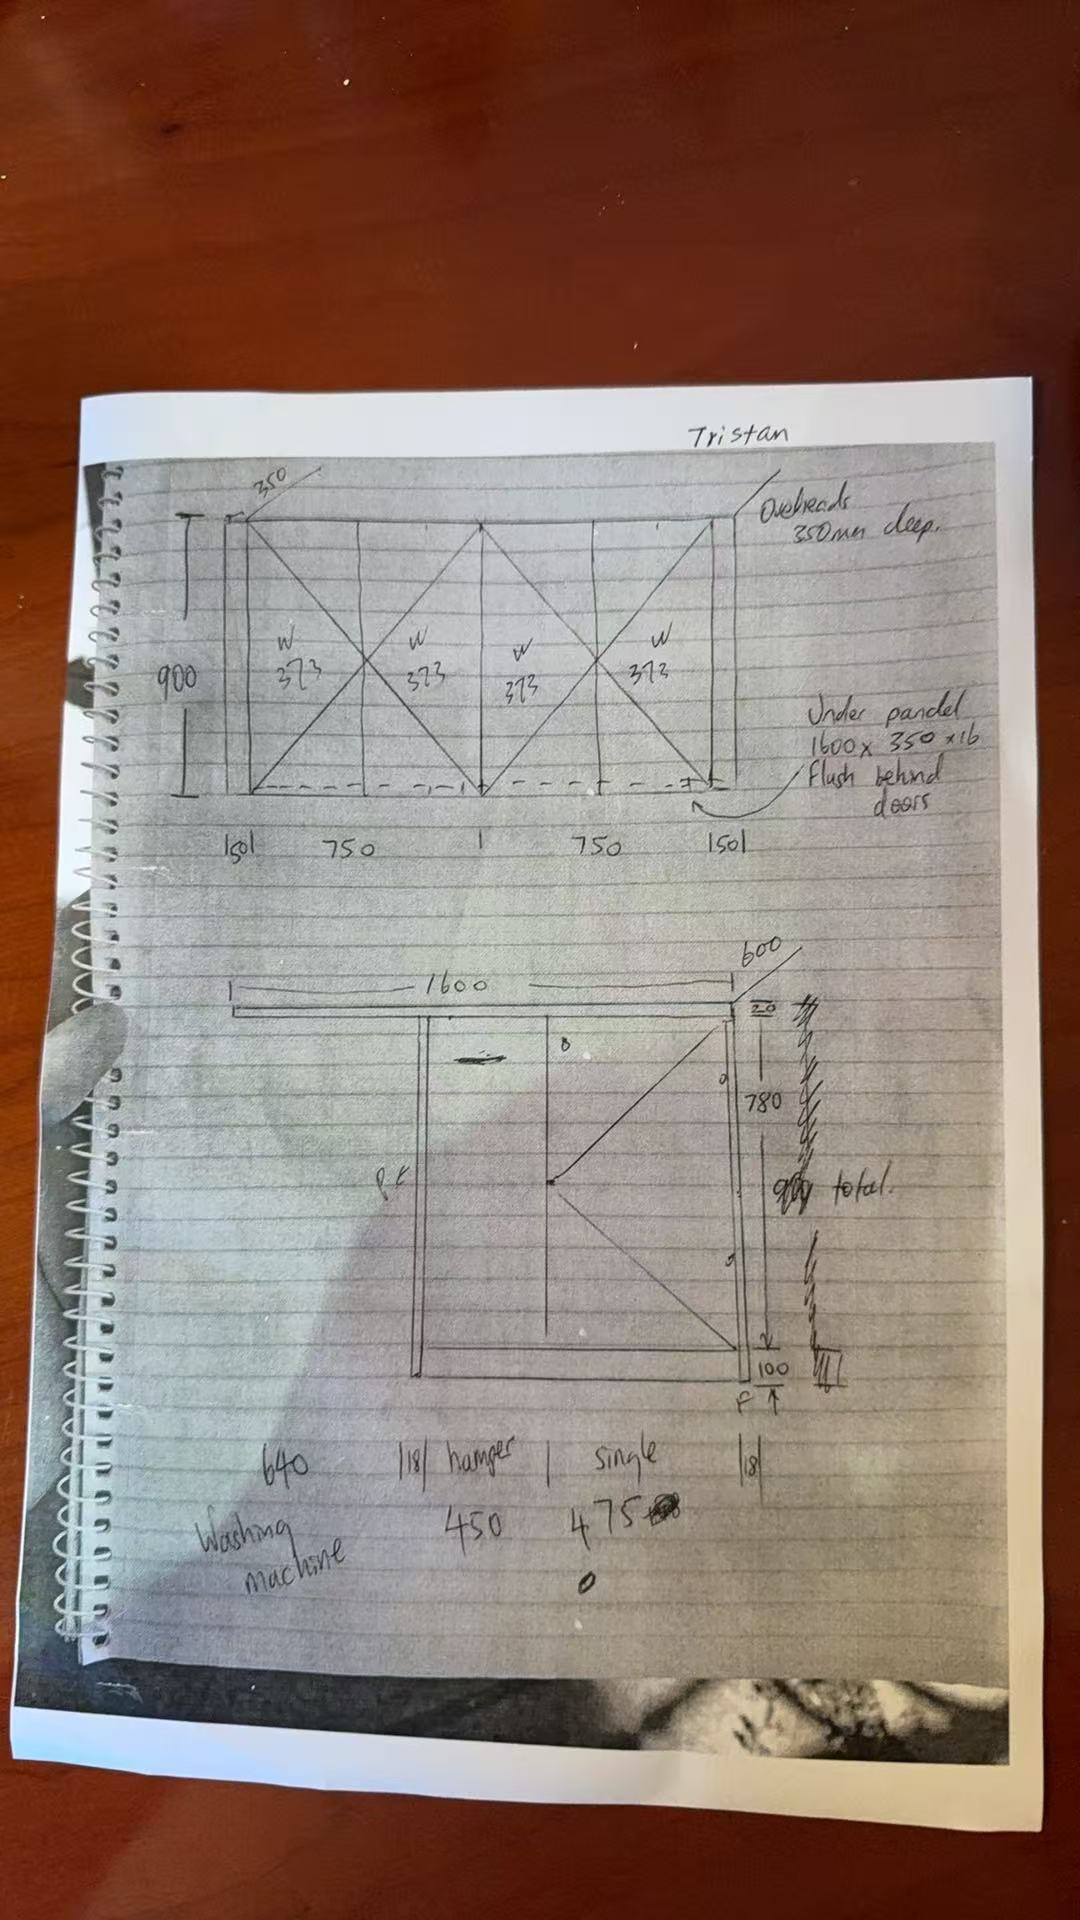 Tristan
350
Overheads
350mm deep.
W
373
W
373
W
373
W
373
900
Under pandel
1600 x 350 x 16
Flush behind
doors
|50| 750 | 750 |50|
600
1600
20
780
total.
100
F
640 |18| hamper | single |18|
Washing
machine
450 475